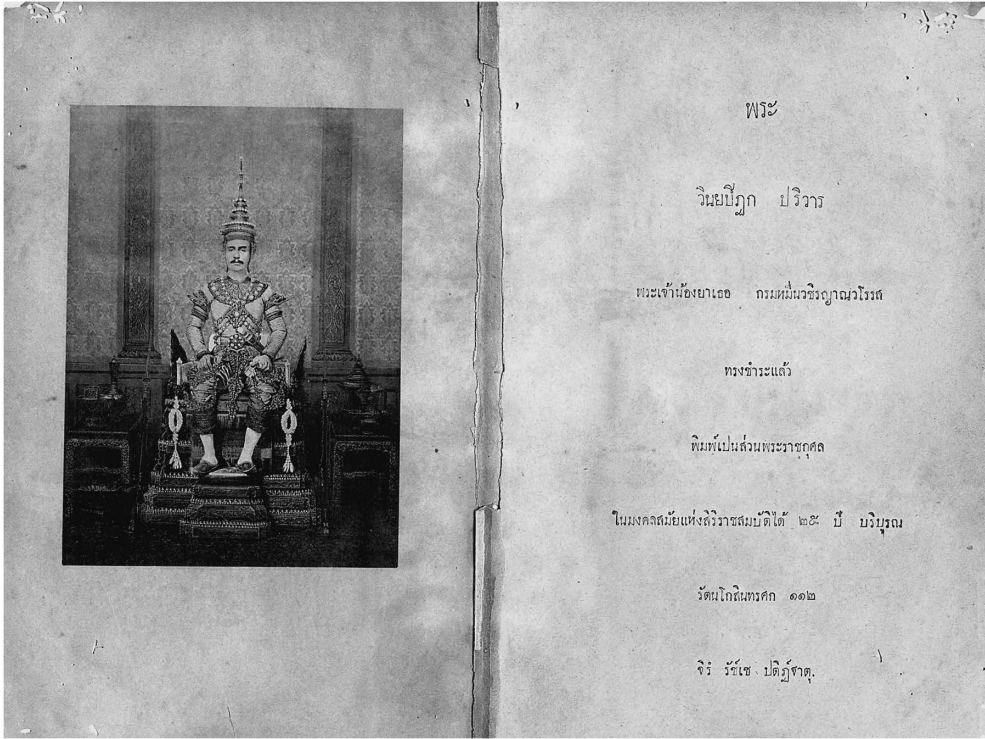 พระ
วินยปิฎก ปริวาร
พระเจ้าน้องยาเธอ กรมหมื่นวชิรญาณวโรรส
ทรงชำระแล้ว
พิมพ์เปนส่วนพระราชกุศล
ในมงคลสมัยแห่งสิริราชสมบัติได้ ๒๕ ปี บริบุรณ
รัตนโกสินทรศก ๑๑๒
จิรํ รัช์เช ปติฏ์ฐาตุ.